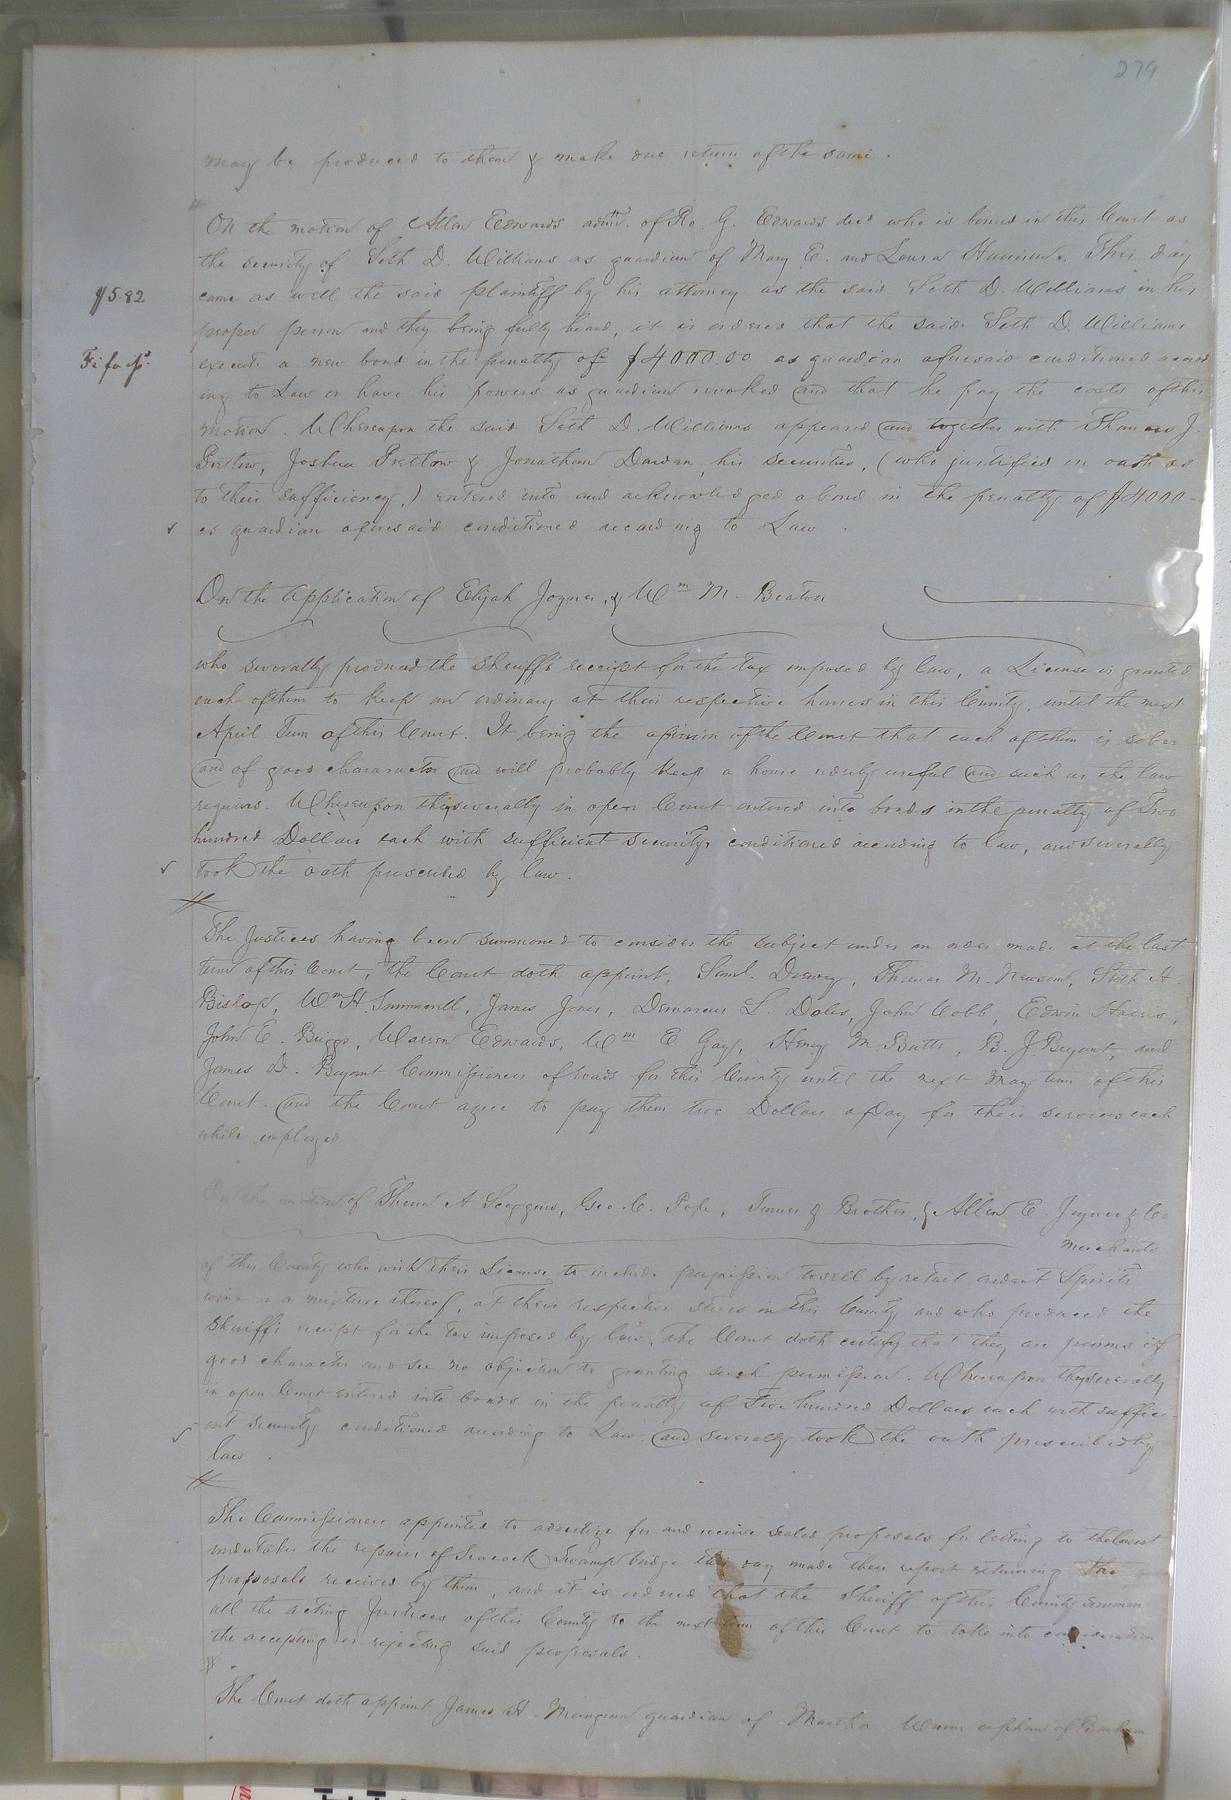 279
may be produced to them & make due return of the same.
On the motion of Allen Edwards admr. of Ro. G. Edwards decd who is bound in this Court as
the security of Seth D. Williams as guardian of Mary E. and Laura Harrison. This day
$5.82
came as well the said plaintiff by his attorney as the said Seth D. Williams in his
proper person and they being fully heard, it is ordered that the said Seth D. Williams
Fi fa
execute a new bond in the penalty of $4000.00 as guardian aforesaid conditioned accord
ing to Law or have his powers as guardian revoked and that he pay the costs of this
motion. Whereupon the said Seth D. Williams appeared and together with Thomas J.
Pretlow, Joshua Pretlow & Jonathan Darden, his securities, (who justified on oath as
to their sufficiency,) entered into and acknowledged a bond in the penalty of $4000-
as guardian aforesaid conditioned according to Law.
On the Application of Elijah Joyner, & Wm M. Beaton
who severally produced the Sheriff's receipt for the tax imposed by law, a License is granted
each of them to keep an ordinary at their respective houses in this County, until the next
April Term of this Court. It being the opinion of the Court that each of them is sober
and of good character and will probably keep a house orderly useful and such as the law
requires. Whereupon they severally in open Court entered into bonds in the penalty of Two
hundred Dollars each with sufficient security conditioned according to law, and severally
took the oath prescribed by law.
The Justices having been summoned to consider the subject under an order made at the last
term of this Court, the Court doth appoint, Saml. Drewry, Thomas M. Newsom, Seth H.
Bishop, Wm H. Summerell, James Jones, Demarcus L. Doles, John Cobb, Edwin Harris,
John E. Briggs, Warren Edwards, Wm E Gay, Henry M Butts, B. J Bryant, and
James D. Bryant Commissioners of roads for this County until the next May term of this
Court. and the Court agree to pay them two Dollars a Day for their services each
while employed
On the motion of A Scoggins, Geo. C. Pope, Turner & Brother, & Allen E. Joyner & Co
merchants
of this County who wish their License to include permission to sell by retail ardent Spirits
wine or a mixture thereof, at their respective stores in this County and who produced the
Sheriff's receipt for the tax imposed by law, the Court doth certify that they are persons of
good character and see no objection to granting such permission. Whereupon they severally
in open Court entered into bonds in the penalty of Five hundred Dollars each with suffici-
ent security conditioned according to Law and severally took the oath prescribed by
law.
The Commissioners appointed to advertize for and receive sealed proposals for letting to the lowest
undertaker the repairs of Seacock Swamp bridge this day made their report returning the
proposals received by them, and it is ordered that the Sheriff of this County summon
all the acting Justices of this County to the next term of this Court to take into consideration
the accepting or rejecting said proposals.
The Court doth appoint James H. Mangum guardian of Martha orphan of